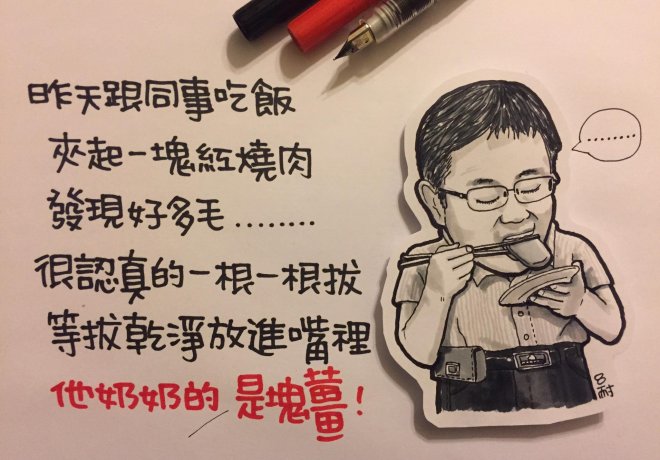 昨天跟同事吃飯
夾起一塊紅燒肉
發現好多毛........
很認真的一根一根拔
等拔乾淨放進嘴裡
他奶奶的 是塊薑!
........
呂耐